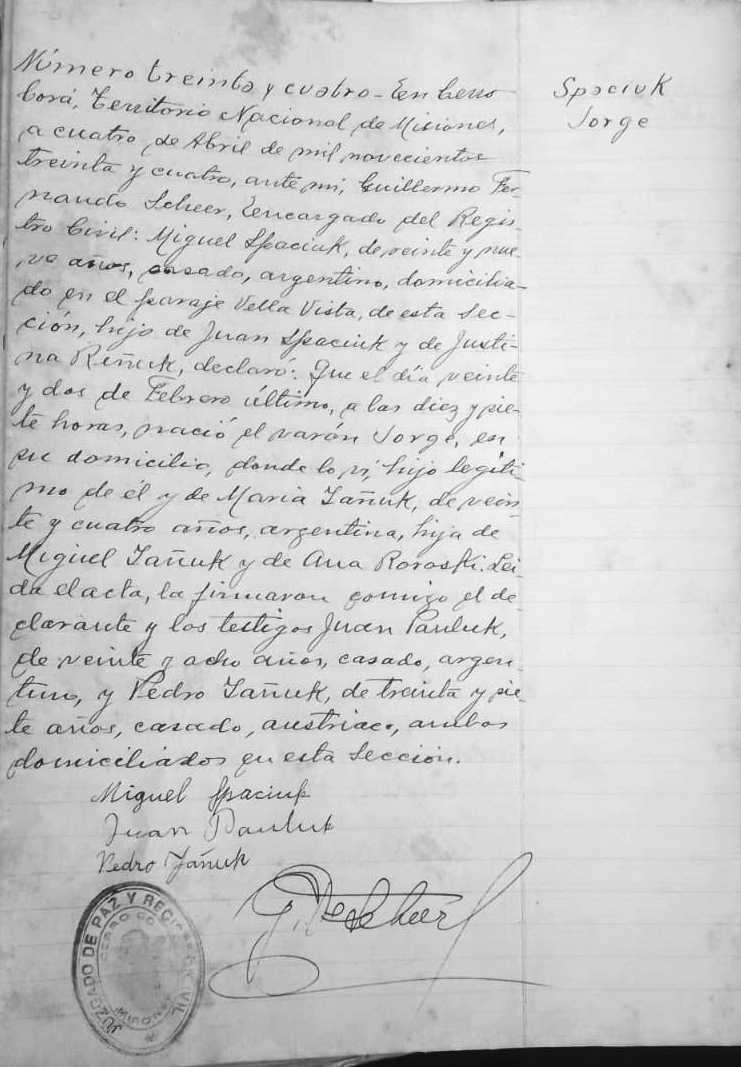 Número treinta y cuatro - En Cerro
Corá, Territorio Nacional de Misiones,
a cuatro de Abril de mil novecientos
treinta y cuatro, ante mí, Guillermo Fer-
nando Scheer, Encargado del Regis-
tro Civil: Miguel Spaciuk, de veinte y nue-
ve años, casado, argentino, domicilia-
do en el paraje Vella Vista, de esta Sec-
ción, hijo de Juan Spaciuk y de Justi-
na Riñuk, declaró: Que el día veinte
y dos de Febrero último, a las diez y sie-
te horas, nació el varón Jorge, en
su domicilio, donde lo ví, hijo legíti-
mo de él y de Maria Zañuk, de vein-
te y cuatro años, argentina, hija de
Miguel Zañuk y de Ana Roroski. Lei-
da el acta, la firmaron comigo el de-
clarante y los testigos Juan Pauluk,
de veinte y ocho años, casado, argen-
tino, y Pedro Zañuk, de treinta y sie-
te años, casado, austriaco, ambos
domiciliados en esta Sección.
Miguel Spaciuk
Juan Pauluk
Pedro Zañuk
Spaciuk
Jorge
JUZGADO DE PAZ Y REGISTRO CIVIL
CERRO CORÁ
MISIONES